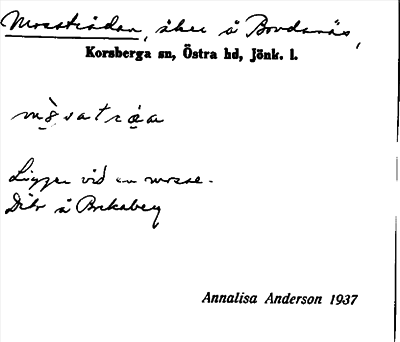 Mossträdan, åker å Bordsnäs,
Korsberga sn, Östra hd, Jönk. l.
Ligger vid en mosse.
Dito å
Annalisa Anderson 1937